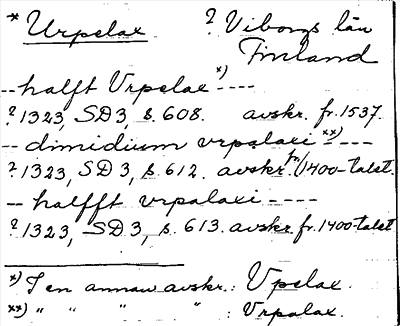 * Urpelax ? Viborgs län
Finland
-- halft Vrpelae *) ----
? 1323, SD 3 s. 608. avskr. fr. 1537.
-- dimidium vrpalaxi **) ---
? 1323, SD 3, s. 612. avskr. fr. 1400-talet.
-- halfft vrpalaxi ----
? 1323, SD 3, s. 613. avskr. fr. 1400-talet
*) I en annan avskr.: Vpelax.
**) " " " " : Vrpalax.